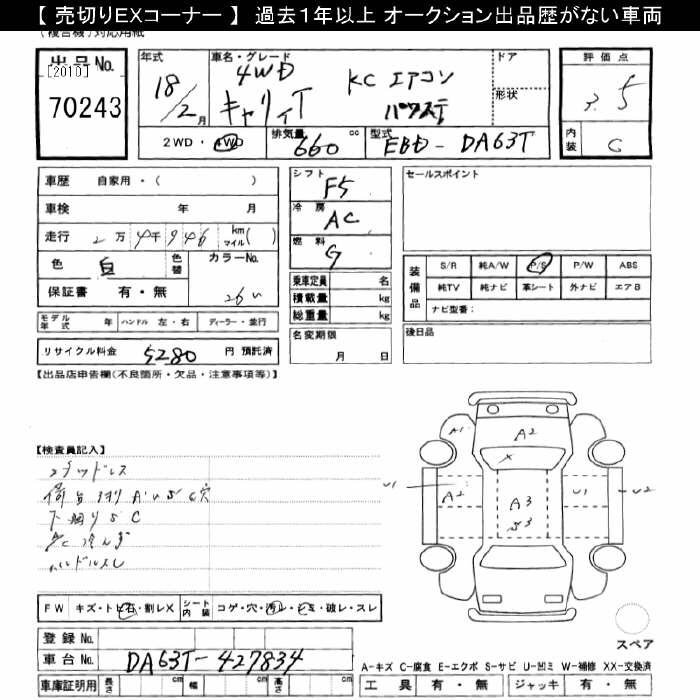 【 売切りEXコーナー 】 過去1年以上 オークション出品歴がない車両
(複合機)対応用紙
出品No. [2010] 70243
年式 18/2月
車名・グレード 4WD キャリイT KC エアコン パワステ
ドア
形状
評価点 5
内装 C
2WD・4WD
排気量 660 cc
型式 EBD-DA63T
車歴 自家用・( )
車検 年 月
走行 2万4千946 km マイル( )
色 白 色替 カラーNo. 26U
保証書 有・無
シフト F5
冷房 AC
燃料 G
乗車定員 名
積載量 kg
総重量 kg
名変期限 月 日
セールスポイント
装備品 S/R 純A/W P/S P/W ABS
純TV 純ナビ 革シート 外ナビ エアB
ナビ型番:
後日品
モデル年式 年 ハンドル 左・右 ディーラー・並行
リサイクル料金 5280 円 預託済
【出品店申告欄(不良箇所・欠品・注意事項等)】
【検査員記入】
下廻りSC
ハンドルスレ
A1 A2
U1 A2 A3 S3 U1 U2
FW キズ・トビ石・割レX シート内装 コゲ・穴・汚レ・シミ・破レ・スレ
登録No.
車台No. DA63T-427834
車庫証明用 長さ cm 幅 cm 高さ cm
スペア
A-キズ C-腐食 E-エクボ S-サビ U-凹ミ W-補修 XX-交換済
工具 有・無 ジャッキ 有・無